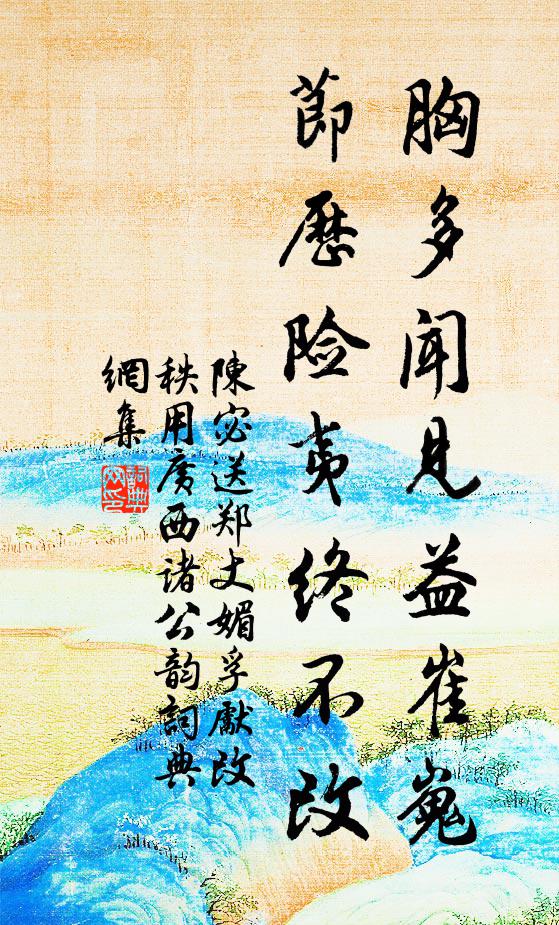 胸多闻见益崔嵬
莭歴险夷终不改
陳宓送郑丈媚孚獻改
秩用广西诸公韵詞典
網集